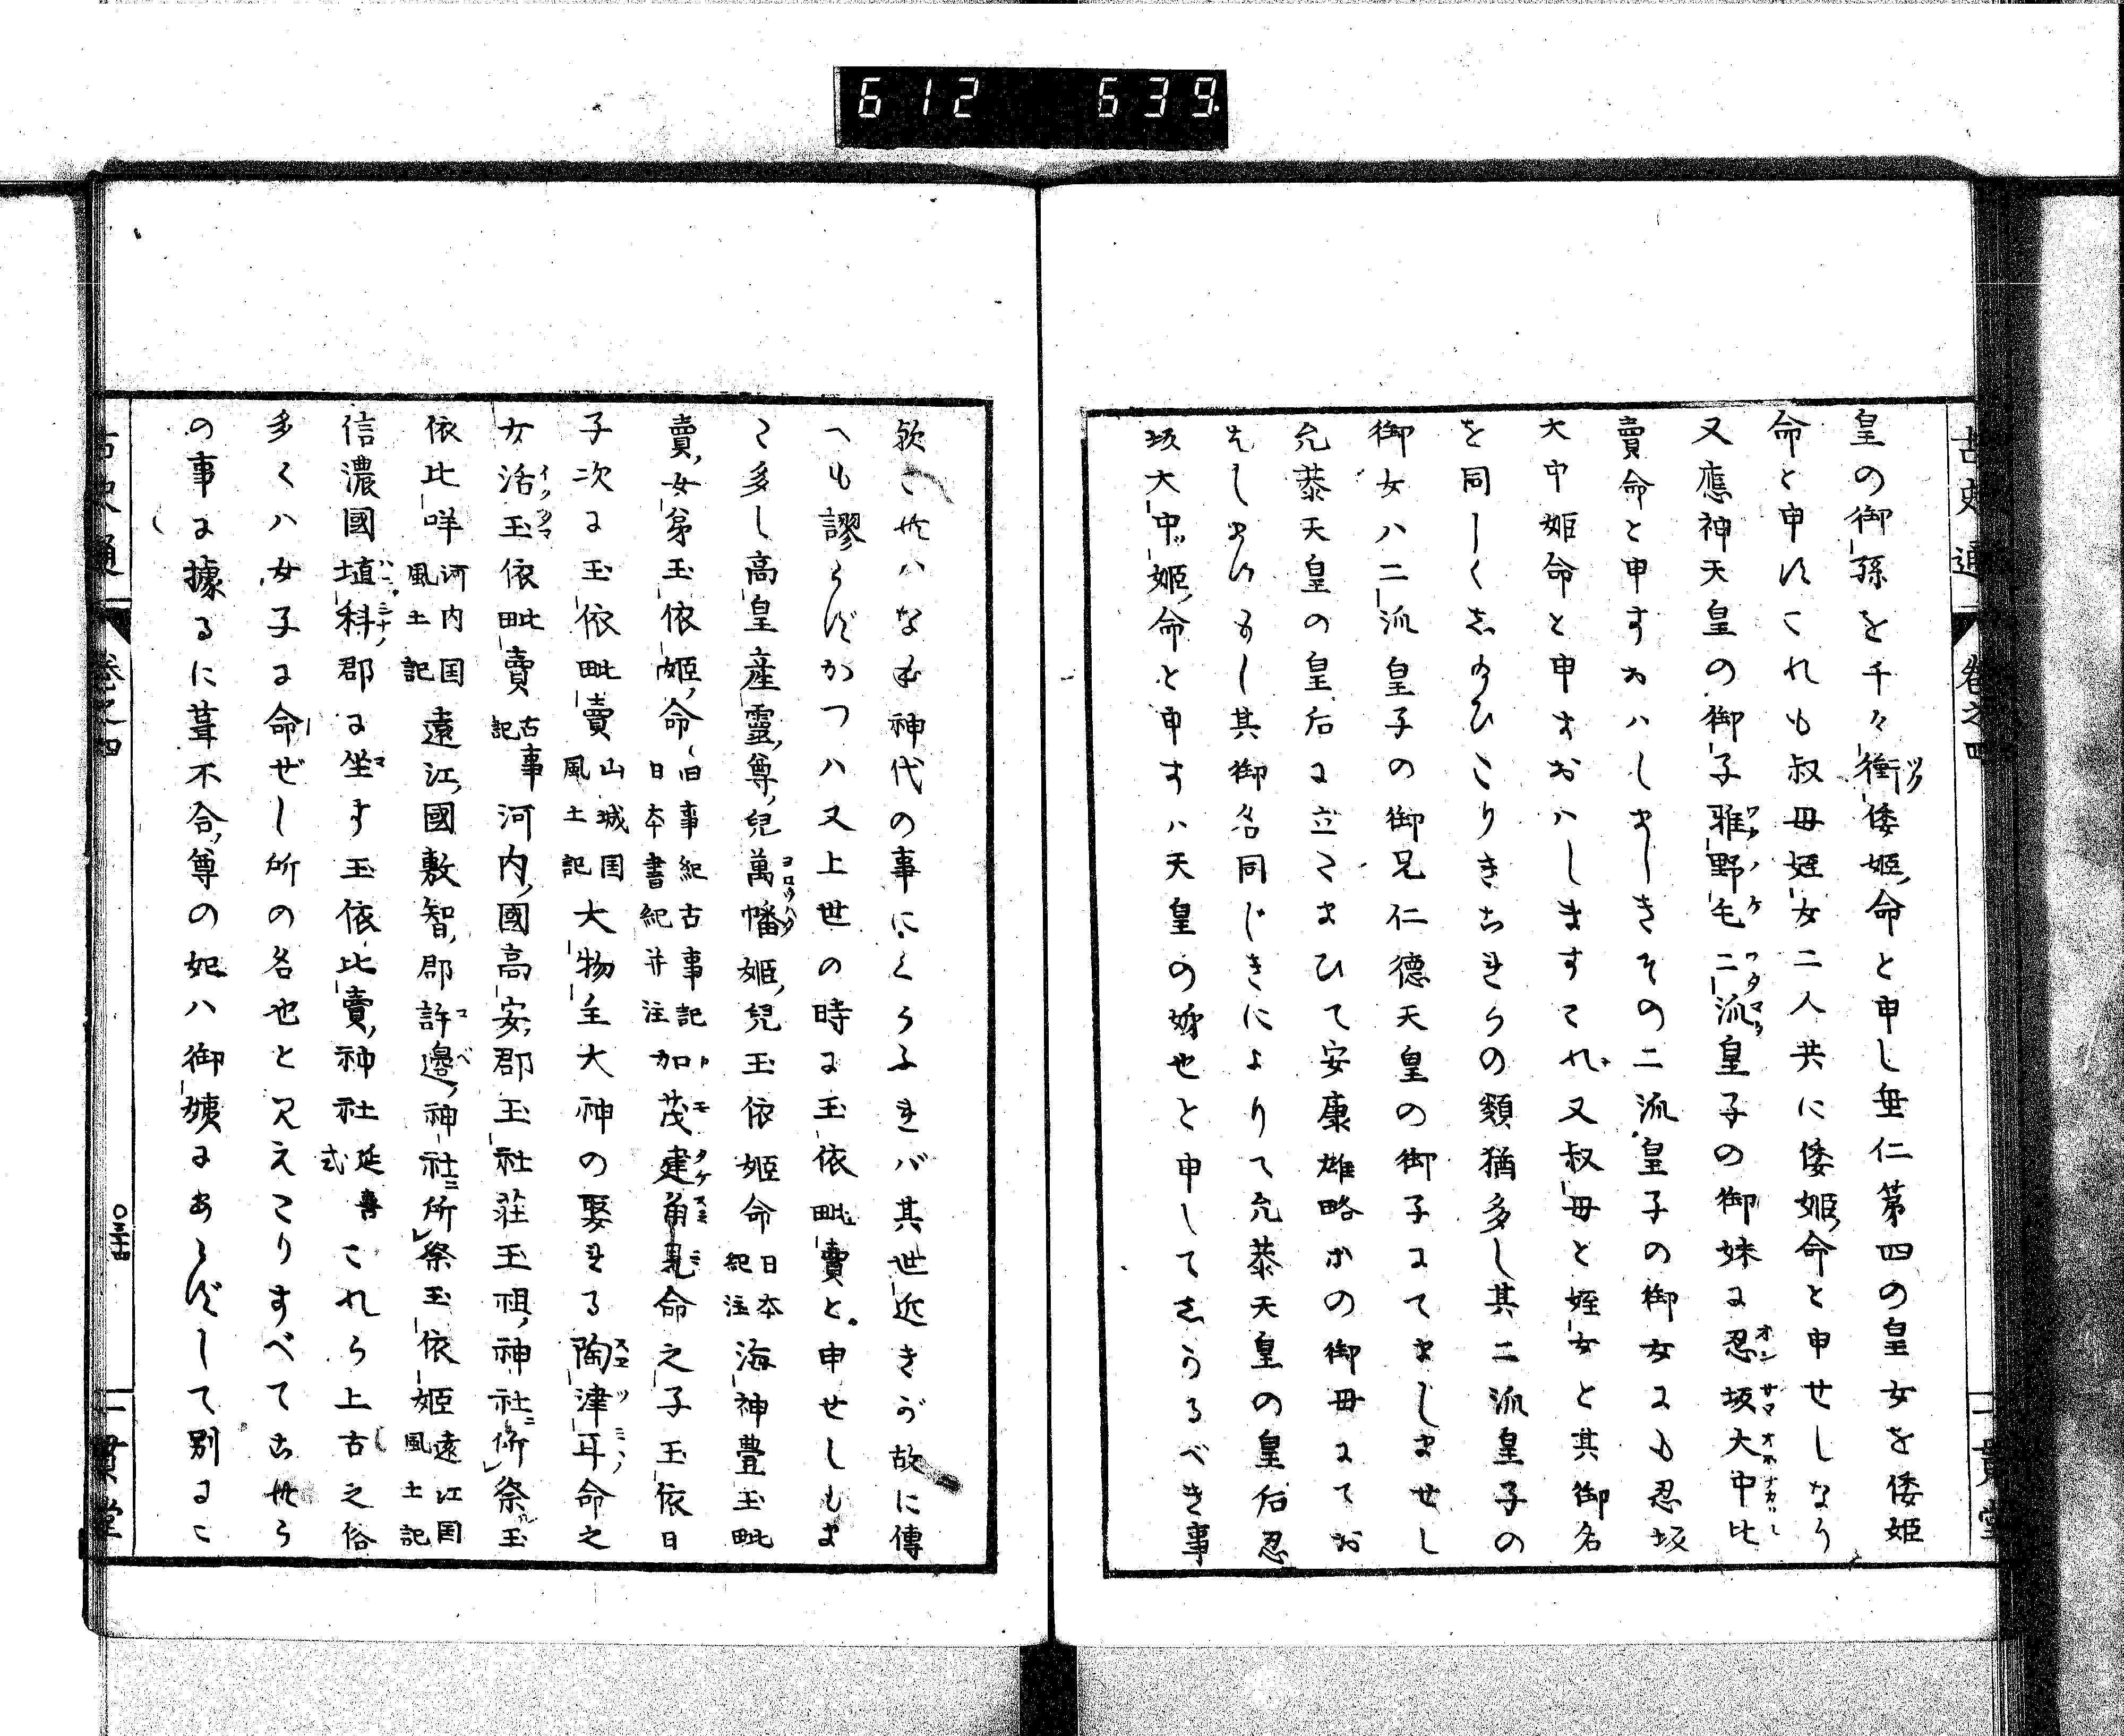 612 639
皇の御孫を千々衝倭姫命と申し垂仁第四の皇女を倭姫
命と申すこれも叔母姪女二人共に倭姫命と申せしなり
又應神天皇の御子雅野毛二派皇子の御妹に忍坂大中比
賣命と申すおハしましきその二派皇子の御女にも忍坂
大中姫命と申すおハしますこれ又叔母と姪女と其御名
を同しくしたまひたりきかれらの類猶多し其二派皇子の
御女ハ二派皇子の御兄仁德天皇の御子にてましませし
允恭天皇の皇后に立てまひて安康雄略かの御母にてお
はしまいもし其御名同じきによりて允恭天皇の皇后忍
坂大中姫命と申すハ天皇の姉也と申してしうるべき事
歟さればなを神代の事にくらふれバ其世近きが故に傳
へも謬らずかつハ又上世の時に玉依毗賣と申せしもま
た多し高皇産靈尊兒萬幡姫兒玉依姫命日本紀注海神豊玉毗
賣女弟玉依姫命旧事紀古事記日本書紀并注加茂建角見命之子玉依日
子次に玉依毗賣山城国風土記大物主大神の娶れる陶津耳命之
女活玉依毗賣古事記河内國高安郡玉社荘玉祖神社所祭玉
依比咩河内国風土記遠江國敷智郡許邊神社所祭玉依姫遠江国風土記
信濃國埴科郡に坐す玉依比賣神社延喜式これら上古之俗
多くハ女子に命ぜし所の名也と見えたりすべてこれら
の事に據るに葺不合尊の妃ハ御姨にあらずして別にこ
古史通 卷之四 〇三十四 一貫堂